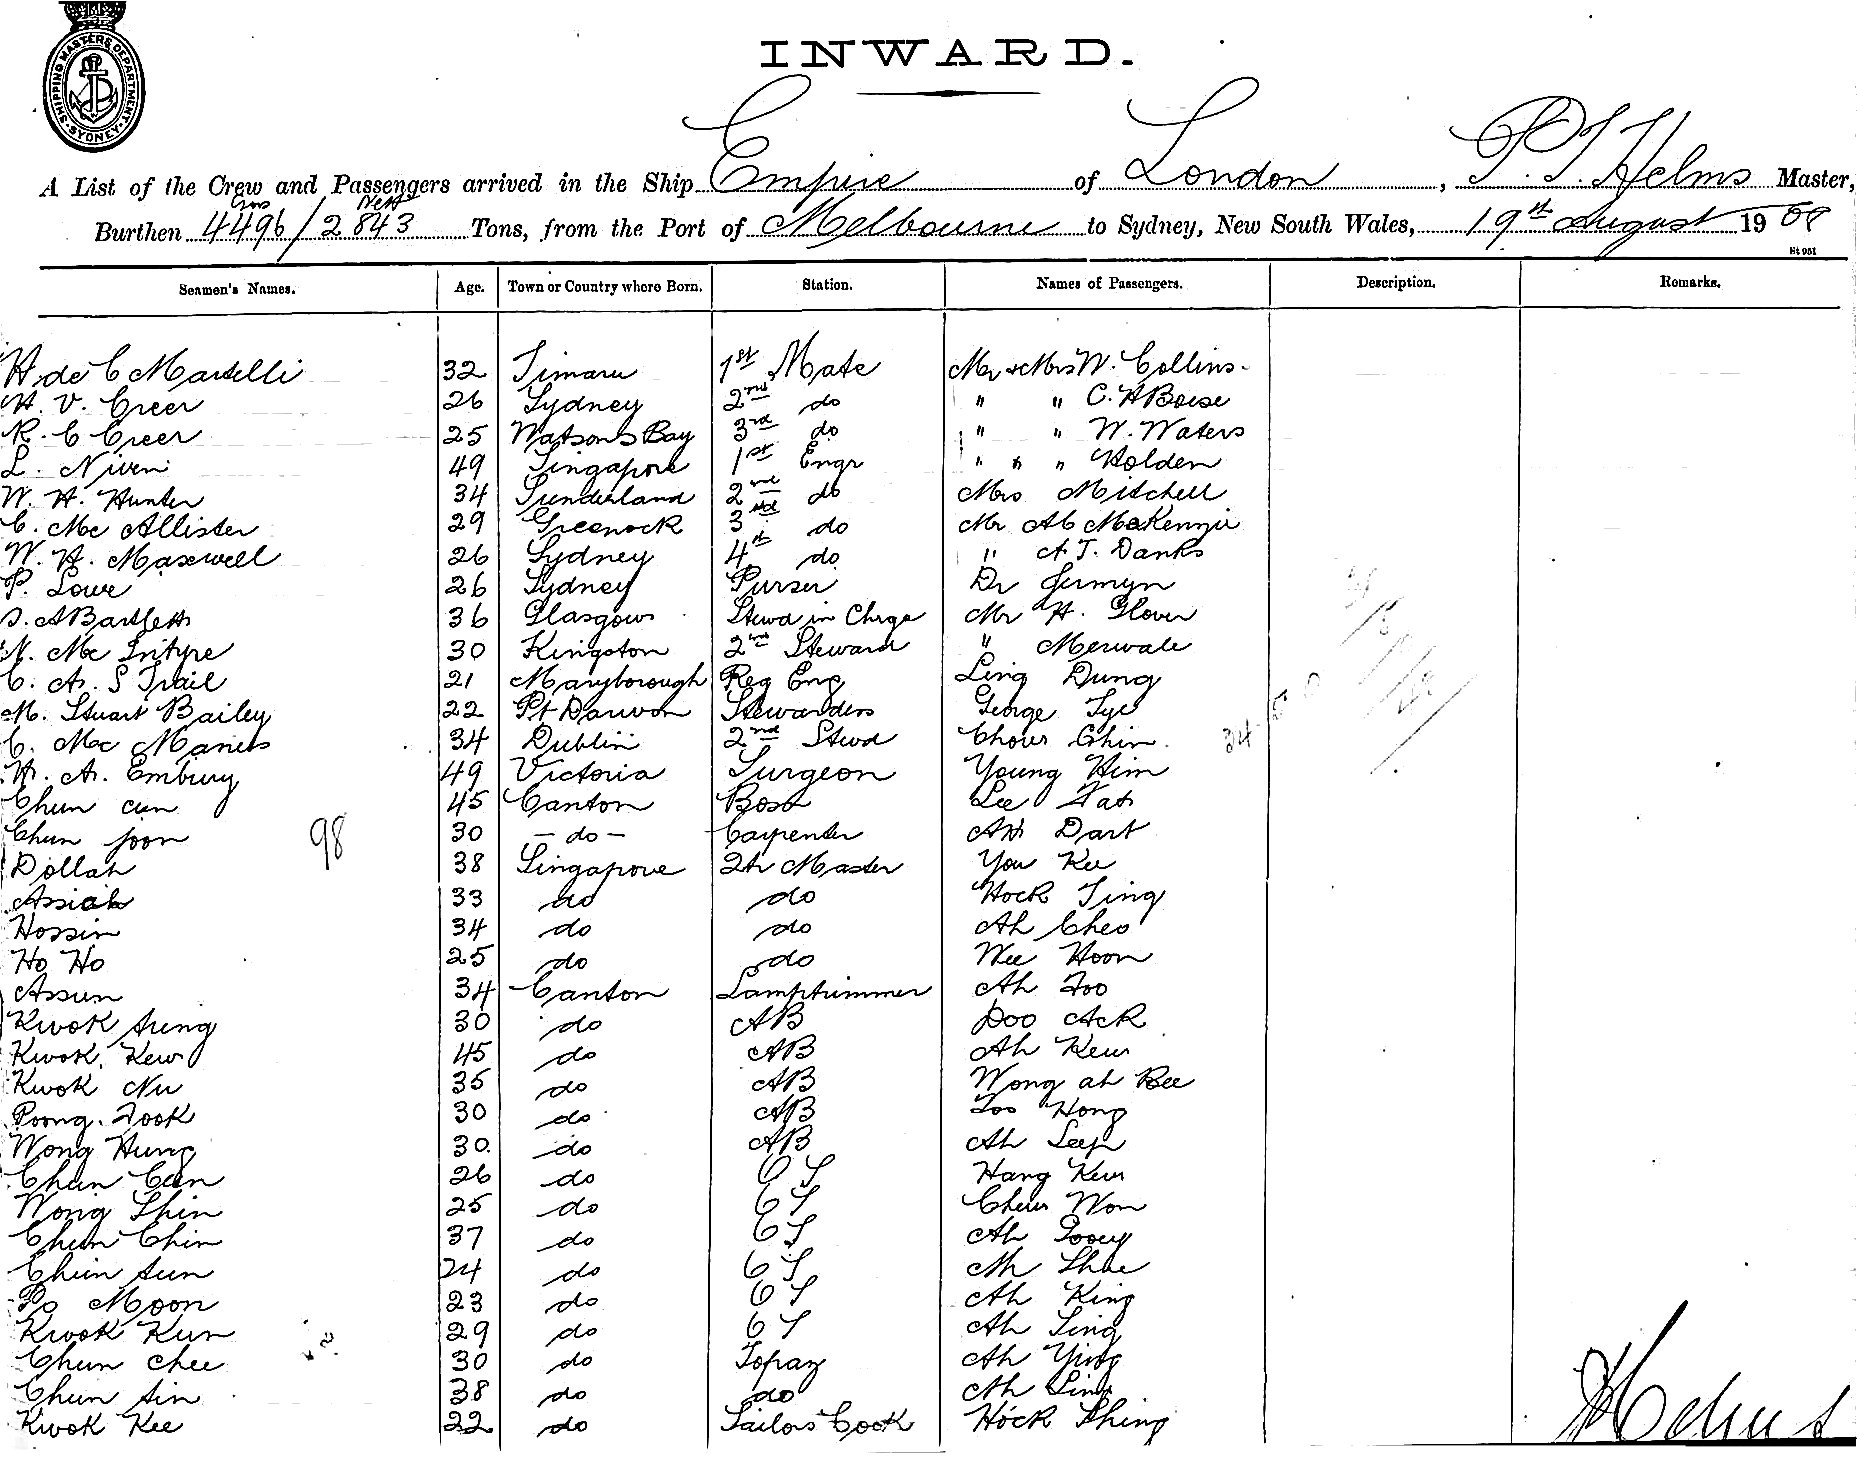 SHIPPING MASTERS DEPARTMENT SYDNEY
INWARD.
A List of the Crew and Passengers arrived in the Ship Empire of London, P. T. Helms Master,
Gross Nett
Burthen 4496/2843 Tons, from the Port of Melbourne to Sydney, New South Wales, 19th August 1909
St 951
Seamen's Names. Age. Town or Country where Born. Station. Names of Passengers. Description. Remarks.
H. de C Martelli 32 Timaru 1st Mate Mr & Mrs W. Collins
H. V. Creer 26 Sydney 2nd do " " C. H Boese
R. C Creer 25 Watsons Bay 3rd do " " W. Waters
L. Niven 49 Singapore 1st Engr " " " Holden
W. H. Hunter 34 Sunderland 2nd do Mrs Mitchell
C. Mc Allister 29 Greenock 3rd do Mr McKenzie
W. H. Maxwell 26 Sydney 4th do " A. J. Danks
P. Lowe 26 Sydney Purser Dr Jermyn
A Bartlett 36 Glasgow Stewd in Chrge Mr H. Glover
Mc Intyre 30 Kingston 2nd Steward " Merwale
C. A. S Trail 21 Maryborough Reg Eng Ling Dung
M. Stuart Bailey 22 Pt Darwon Stewardess George Tye
C. Mc Manus 34 Dublin 2nd Stwd Chour Chin 34
H. A. Embury 49 Victoria Surgeon Young Him
Chun cun 45 Canton Bosn Lee Fat
Chun foon 98 30 - do - Carpenter Ah Dart
Dollah 38 Singapore Qr Master You Kee
Assiah 33 do do Hock Ting
Hossin 34 do do Ah Cheo
Ho Ho 25 do do Wee Hoon
Assun 34 Canton Lamptrimmer Ah Foo
Kwok Sung 30 do AB Doo Ack
Kwok Kew 45 do AB Ah Kew
Kwok Nu 35 do AB Wong ah Bee
Poong Fook 30 do AB Loo Hong
Wong Hung 30. do AB Ah Leep
Chun Can 26 do OS Hang Kew
Wong Shin 25 do OS Chew Won
Chun Chin 37 do OS Ah Pooey
Chun Sun 24 do OS Ah Shue
Po Moon 23 do OS Ah King
Kwok Kun 29 do OS Ah Sing
Chun chee 30 do Topaz Ah Ying
Chun Sin 38 do do Ah Sing
Kwok Kee 22 do Sailors Cook Hock Shing
Helms